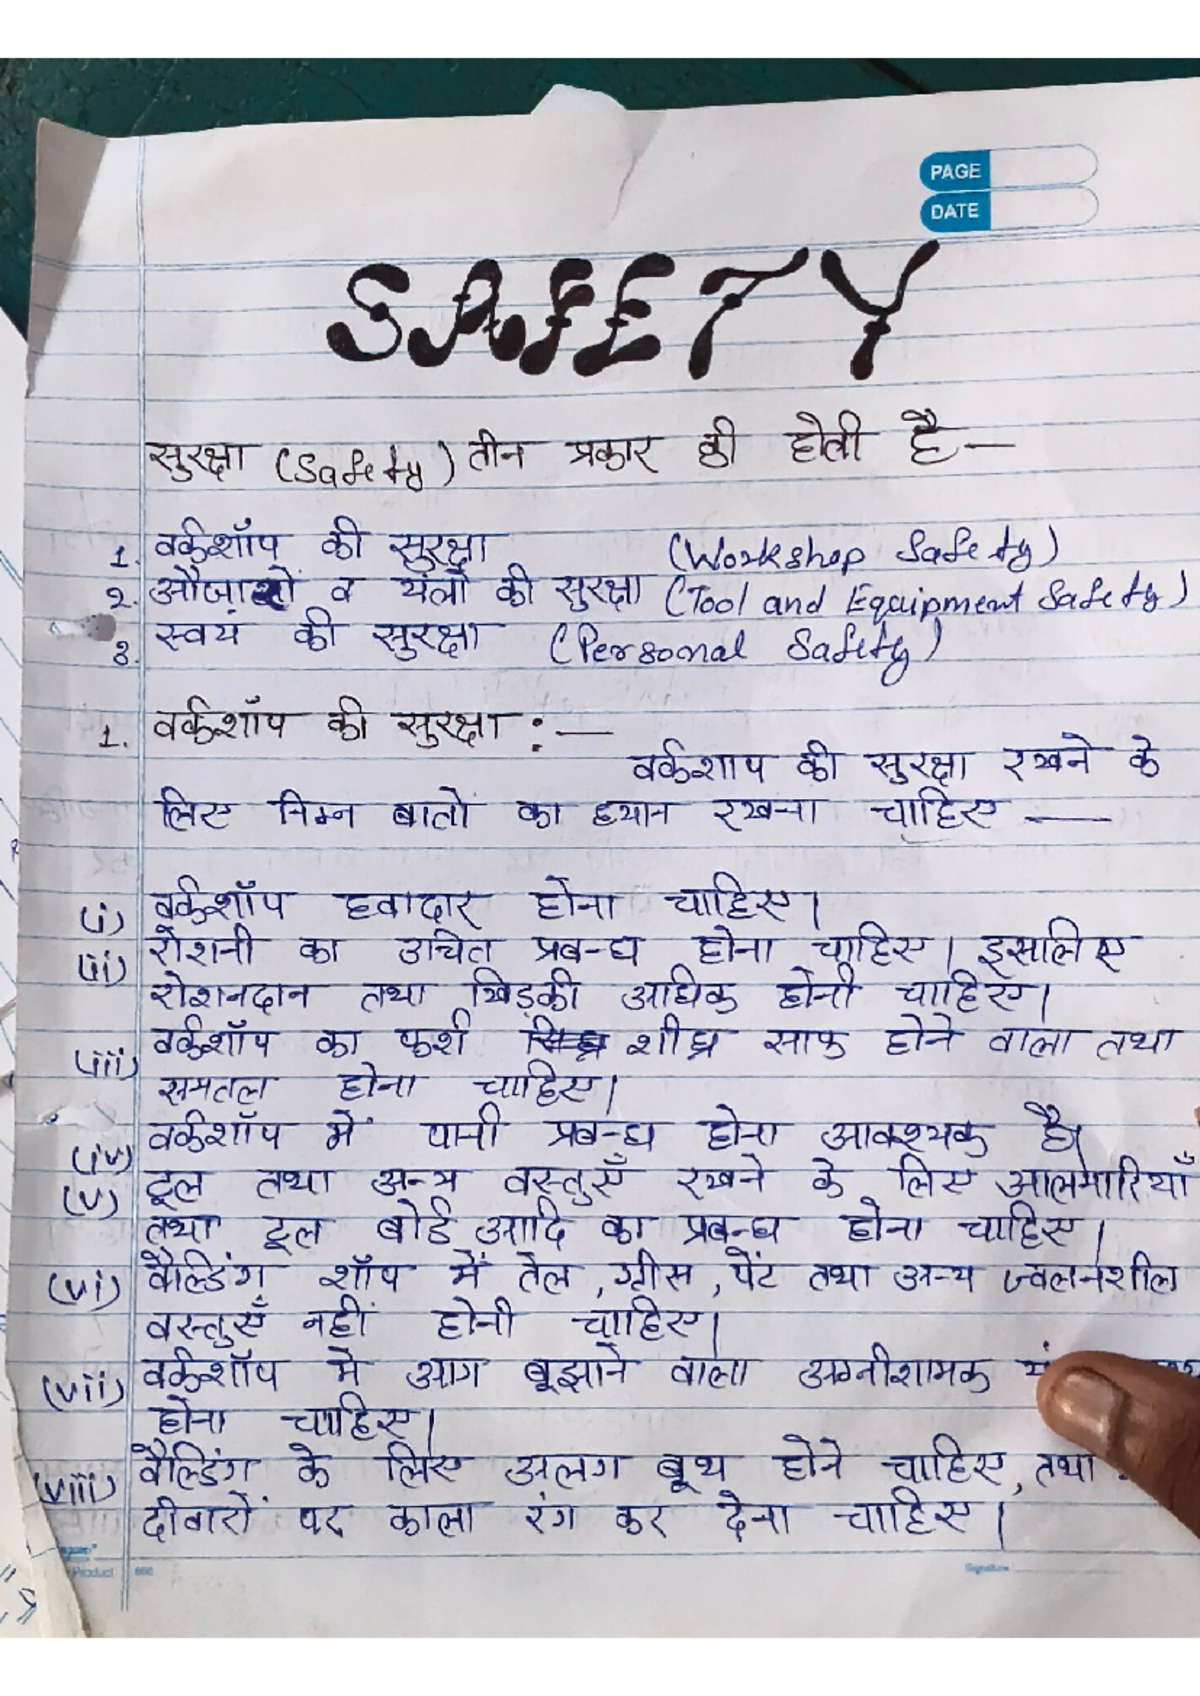 PAGE
DATE
SAFETY
सुरक्षा (Safety) तीन प्रकार की होती है —
1. वर्कशॉप की सुरक्षा (Workshop Safety)
2. औजारों व यंत्रों की सुरक्षा (Tool and Equipment Safety)
3. स्वयं की सुरक्षा (Personal Safety)
1. वर्कशॉप की सुरक्षा :—
वर्कशाप की सुरक्षा रखने के
लिए निम्न बातों का ध्यान रखना चाहिए —
(i) वर्कशॉप हवादार होना चाहिए।
(ii) रोशनी का उचित प्रबन्ध होना चाहिए। इसलिए
रोशनदान तथा खिड़की अधिक होनी चाहिए।
(iii) वर्कशॉप का फर्श शीघ्र साफ होने वाला तथा
समतल होना चाहिए।
(iv) वर्कशॉप में पानी प्रबन्ध होना आवश्यक है।
(v) टूल तथा अन्य वस्तुएँ रखने के लिए आलमारियाँ
तथा टूल बोर्ड आदि का प्रबन्ध होना चाहिए।
(vi) वैल्डिंग शॉप में तेल, ग्रीस, पेंट तथा अन्य ज्वलनशील
वस्तुएँ नहीं होनी चाहिए।
(vii) वर्कशॉप मे आग बूझाने वाला अग्नीशामक
होना चाहिए।
(viii) वैल्डिंग के लिए अलग बूथ होने चाहिए, तथा
दीवारों पर काला रंग कर देना चाहिए।
Product 866
Signature